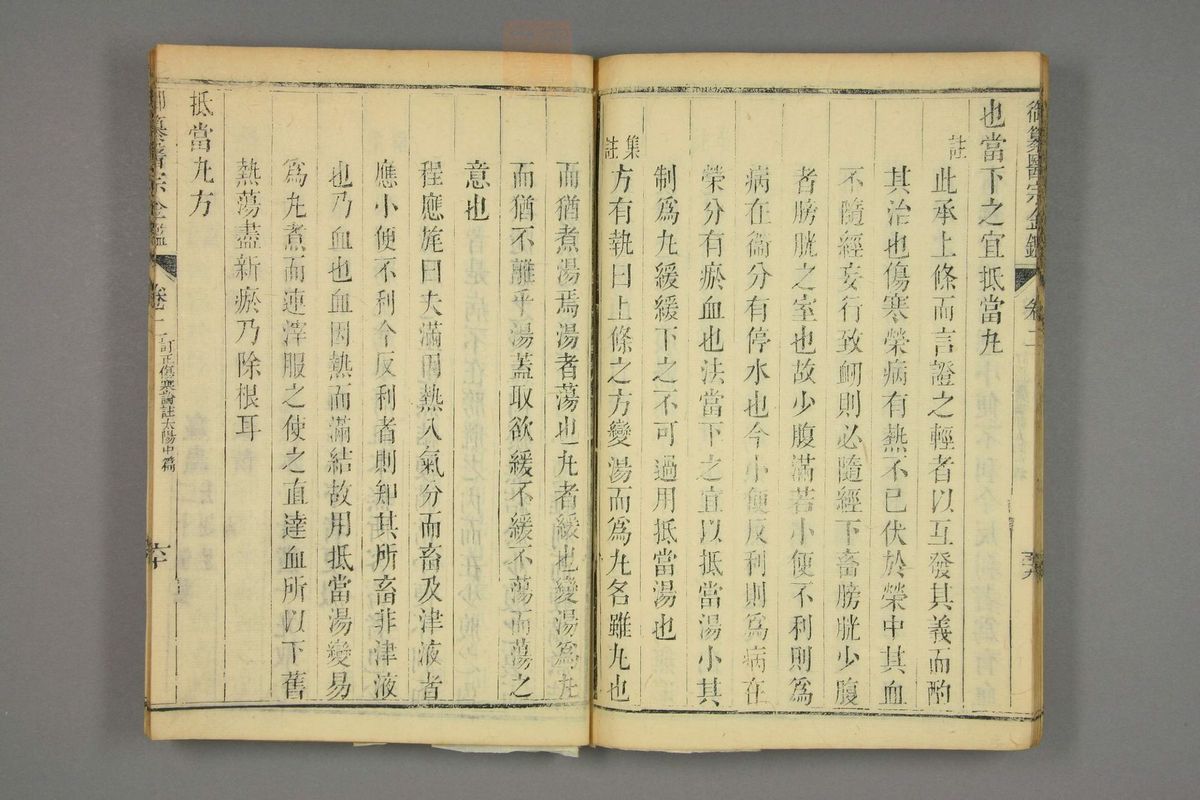 御纂醫宗金鑑 卷二 五九
也當下之宜抵當丸
註
此承上條而言證之輕者以互發其義而酌
其治也傷寒榮病有熱不已伏於榮中其血
不隨經妄行致衂則必隨經下畜膀胱少腹
者膀胱之室也故少腹滿若小便不利則爲
病在衞分有停水也今小便反利則爲病在
榮分有瘀血也法當下之宜以抵當湯小其
制爲丸緩緩下之不可過用抵當湯也
集註
方有執曰上條之方變湯而爲丸名雖丸也
而猶煮湯焉湯者蕩也丸者緩也變湯爲丸
而猶不離乎湯蓋取欲緩不緩不蕩而蕩之
意也
程應旄曰夫滿因熱入氣分而畜及津液者
應小便不利今反利者則知其所畜非津液
也乃血也血因熱而滿結故用抵當湯變易
爲丸煮而連滓服之使之直達血所以下舊
熱蕩盡新瘀乃除根耳
抵當丸方
纂醫宗金鑑 卷二 訂正傷寒論註太陽中篇 六十